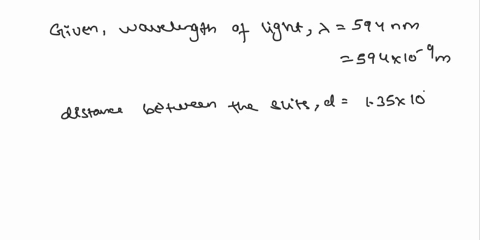 Given, wavelength of light, λ = 594 nm
= 594×10⁻⁹ m
distance between the slits, d = 1.35×10